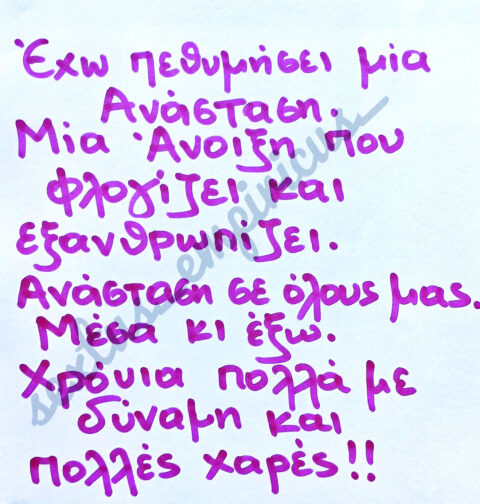 Έχω πεθυμήσει μία
Ανάσταση.
Μία Άνοιξη που
φλογίζει και
εξανθρωπίζει.
Ανάσταση σε όλους μας.
Μέσα κι έξω.
Χρόνια πολλά με
δύναμη και
πολλές χαρές!!
sextus_empiricus_